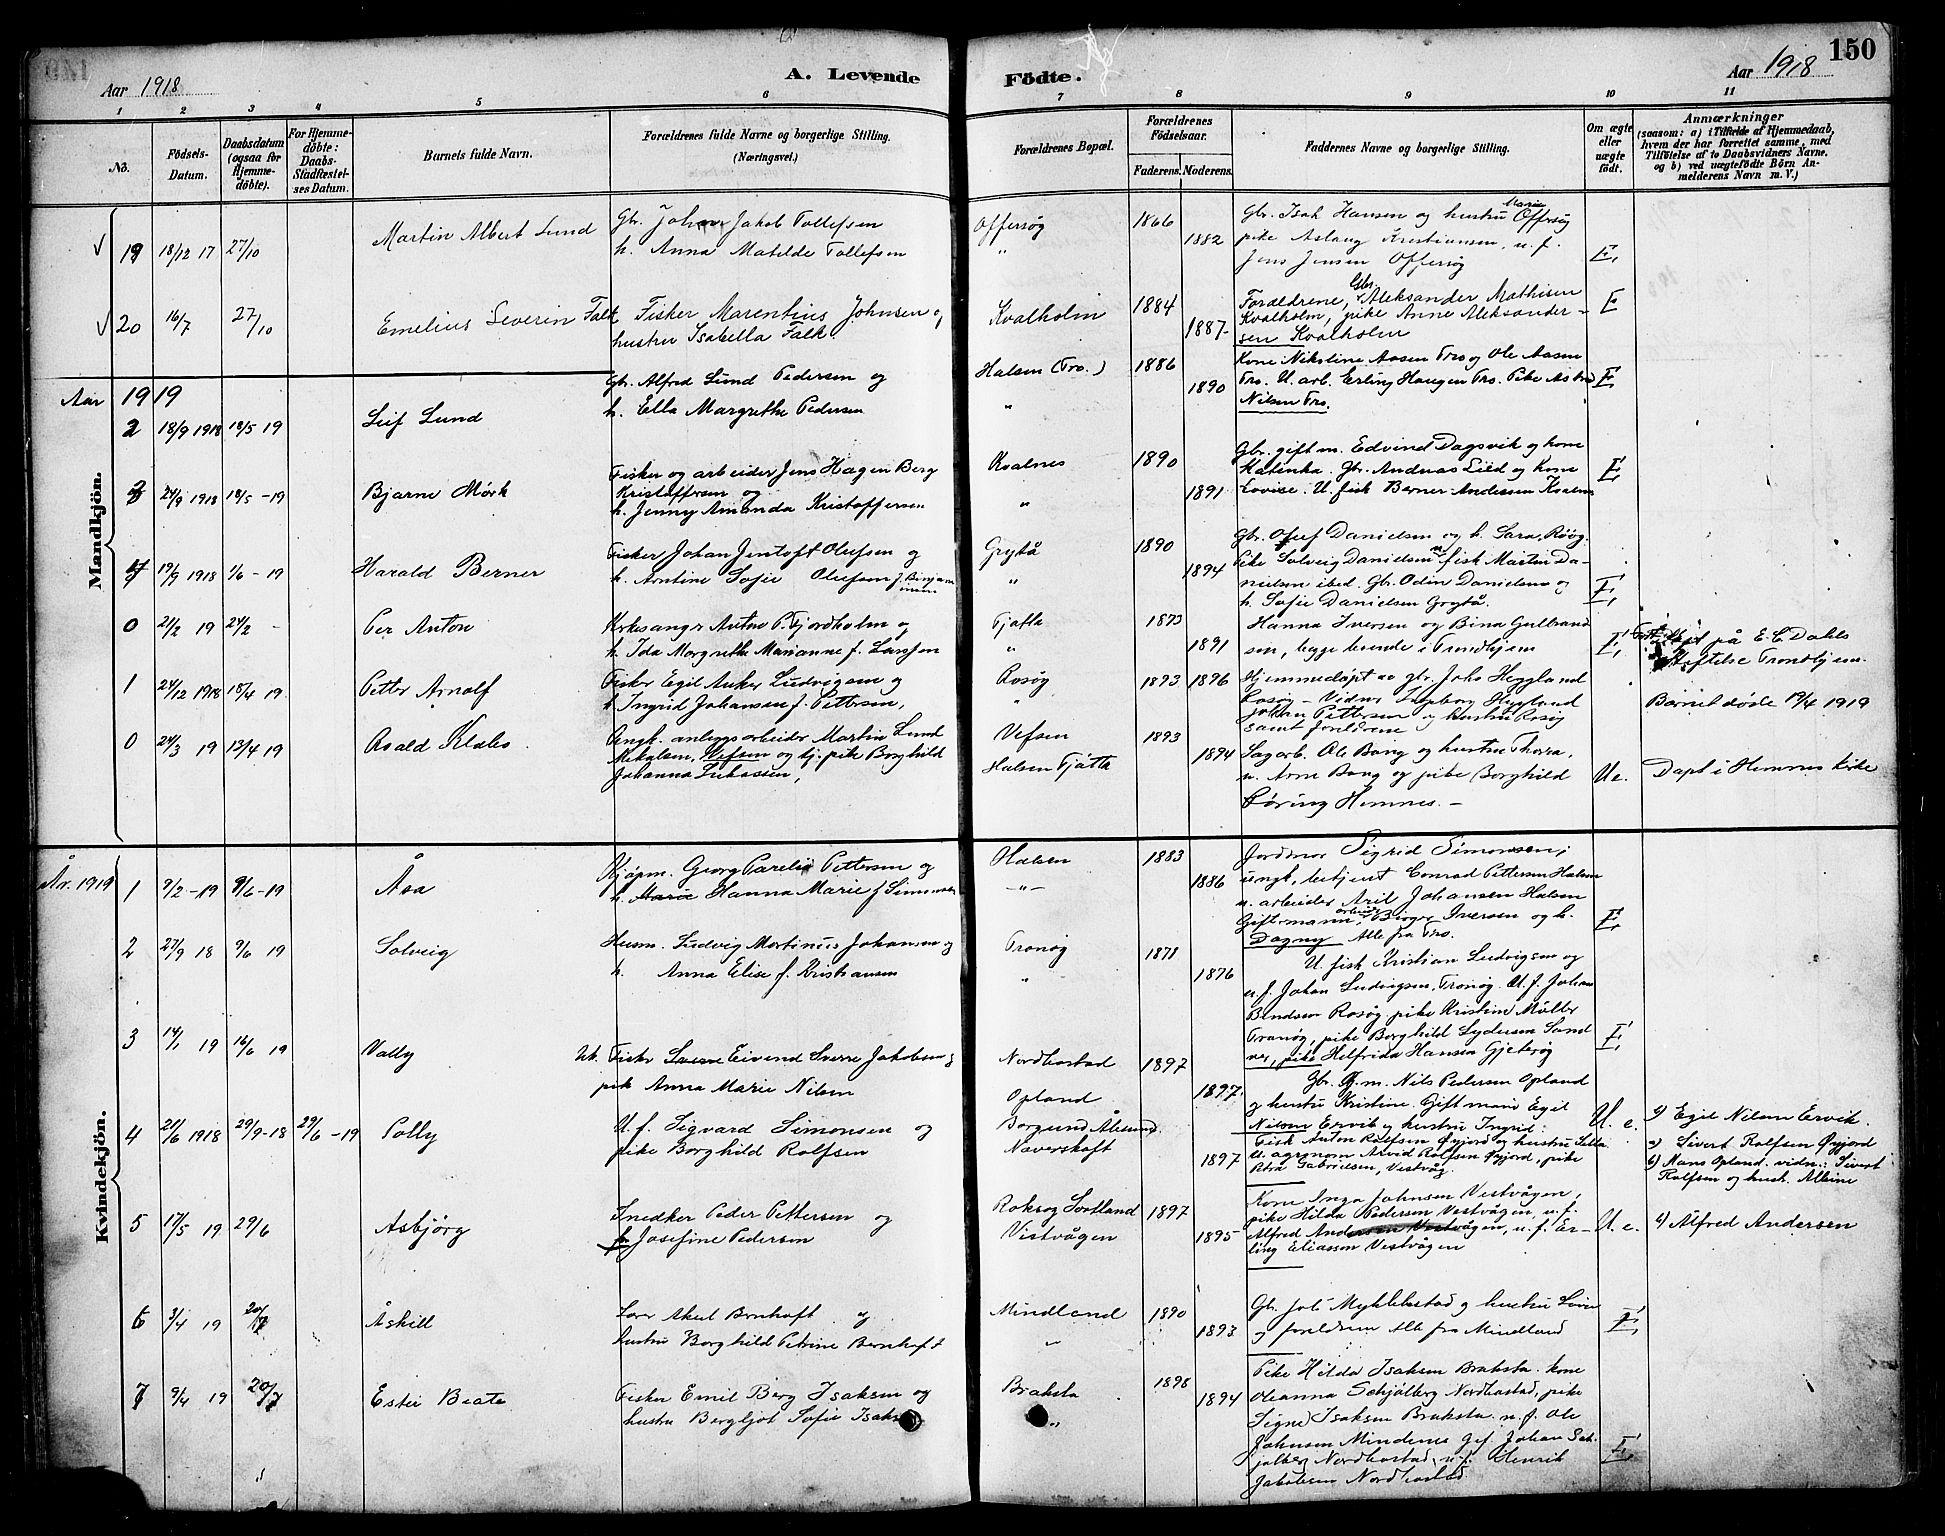 Aar 1918
A. Levende
Födte.
Aar 1918
150
1 2 3 4 5 6 7 8 9 10 11
No.
Födsels-Datum.
Daabsdatum (ogsaa for Hjemmedöbte).
For Hjemmedöbte: Daabs-Stadfæstelses Datum.
Barnets fulde Navn.
Forældrenes fulde Navne og borgerlige Stilling.
(Næringsvei.)
Forældrenes Bopæl.
Forældrenes Födselsaar.
Faderens. Moderens.
Faddernes Navne og borgerlige Stilling.
Om ægte eller uægte födt.
Anmærkninger
(saasom: a) i Tilfælde af Hjemmedaab, hvem der har forrettet samme, med Tilföielse af to Daabsvidners Navne, og b) ved uægtefödte Börn Anmelderens Navn m. V.)
Mandkjön.
19 18/12 17 27/10 Martin Albert Lund
Gbr. Johan Jakob Tollefsen
h. Anna Matilde Tollefsen
Offersøg
"
1866
1882
Gbr. Isak Hansen og hustru Marie Offersøg
pike Aslaug Kristiansen, u. f.
Jens Jensen Offersøg
E.
20 16/7 27/10 Emelius Severin Falk
Fisker Marentius Johnsen og
hustru Isabella Falk.
Kvalholm
1884
1887
Forældrene, Gbr. Aleksander Mathisen
Kvalholm, pike Anne Aleksander-
sen Kvalholm
E
Aar 1919
2 18/9 1918 18/5 19 Leif Lund
Gbr. Alfred Lund Pedersen og
h. Ella Margrethe Pedersen
Halsen (Tro.)
"
1886
1890
Kone Nikoline Aasen Tro og Ole Aasen
Tro. U. arb. Erling Haugen Tro. Pike Astrid
Nilsen Tro.
E
3 24/9 1918 18/5-19 Bjarne Mørk
Fisker og arbeider Jens Hagen Berg
Kristoffersen og
h. Jenny Amanda Kristoffersen
Kvalnes
"
1890
1891
Gbr. gift m. Edvind Dagsvik og kone
Katinka. Gbr. Andreas Lied og Kone
Lovise. U. fisk Berner Andersen Kvalnes
E
19/9 1918 1/6-19 Harald Berner
Fisker Johan Jentoft Olufsen og
h. Antine Sofie Olufsen f. Binjam
insen
Grytå
"
1890
1894
Gbr. Oluf Danielsen og h. Sara, Røøg.
Pike Solveig Danielsen fisk Martin Da-
nielsen ibed. Gbr. Odin Danielsen og
h. Sofie Danielsen Grytå.
E.
0 21/2 19 24/2 - Per Anton
Kirkesanger Anton P. Fjordholm og
h. Ida Margrethe Marianne f. Larsen
Tjøtta
"
1873
1891
Hanna Iversen og Bina Gulbrand
sen, begge boende i Trondhjem
E.
på E. C. Dahls
Stiftelse Trondhjem.
1 24/12 1918 18/4 19 Petter Arnolf
Fisker Egil Anker Ludvigsen og
h. Ingrid Johansen f. Pettersen,
Rosøg
"
1893 1896
Hjemmedøpt av gbr. Johs Heggland
Rosøg - Vidner Ingeborg Heggland
Johan Pettersen og hustru Rosøg
samt foreldrene
Barnet døde 19/4 1919
0 24/3 19 13/4 19
Ungk. anleggsarbeider Martin Lund
Mikalsen, Vefsen og tj. pike Borghild
Johanna Lukassen,
Vefsen
Halsen Tjøtta
1893
1894
Sagarb. Ole Bang og hustru Thora,
u. Arne Bang og pike Borghild
Hemnes. -
U e.
Døpt i Hemnes Kirke
Kvindekjön.
År. 1919
1 9/2-19 9/6-19 Åsa
Kjøpm. Georg Parelius Pettersen og
h. Marie Hanna Marie f Simonsen
Halsen
-"-
1883
1886
Jordmor Sigrid Simonsen;
ungk. betjent Conrad Pettersen Halsen
u. arbeider Aril Johansen Halsen
Giftermann, arbeider Birger Iversen og h.
Dagny Alle fra Tro.
E
2 27/9 18 9/6 19 Solveig
Husm. Ludvig Martinus Johansen og
h. Anna Elise f. Kristiansen
Tranøg
"
1871
1876
U. fisk Kristian Ludvigsen og
u. f. Johan Ludvigsen, Tranøg. U. f. Johan
Rosøg, pike Kristine Müller
Tranøg, pike Borghild Sydersen Sand
nes, pike Helfrida Hansen Gjeterøg
E.
3 14/1 19 16/6 19 Vally
Uk. Fisker Sverre Eivind Sverre Jakobsen og
pike Anna Marie Nilsen
Nordbostad
Opland
1897
1897.
Gbr. G. m. Nils Pedersen Opland
og hustru Kristine. Gift mann Egil
Nilsen Ervik og hustru Ingrid.
U. e.
1) Egil Nilsen Ervik.
4 21/6 1918 29/9-18 29/6-19 Polly
U. f. Sigvard Simonsen og
pike Borghild Rolfsen
Borgund Ålesund
Naverskaft
1897
Fisk Anton Rolfsen Øyjord og hustru
U. agronom Arvid Rolfsen Øyjord, pike
Petra Gabrielsen, Vestvåg.
a) Sivert Rolfsen Øyjord
b) Hans Opland. vidn.: Sivert
Rolfsen og hust. Albine
5 17/5 19 29/6 Asbjörg
Snedker Peder Pettersen og
p. Josefine Pedersen
Roksøg Sortland
Vistvågen
1897
1895
Kone Inga Johnsen Vestvågen,
pike Hilda Pedersen Vestvågen, u. f.
Alfred Andersen Vestvågen, u. f. Er-
ling Eliassen Vestvågen
U. e.
1) Alfred Andersen
6 3/4 19 20/7 Åskill
Aksel Bernhoft og
hustru Borghild Petrine Bernhoft
Mindland
"
1890
1893
Gbr. Joh Myklebostad og hustru
og foreldrene Alle fra Mindland
E.
7 9/4 19 20/7 Ester Beate
Fisker Emil Berg Isaksen og
hustru Bergljot Sofie Isaksen
Braksta
"
1898
1894
Pike Hilda Isaksen Braksta. kone
Oleanna Schjølberg Nordbostad, pike
Signe Isaksen Braksta. u. f. Ole
Johnsen Mindenes Gif. Johan Sch-
jølberg Nordbostad, u. f. Henrik
Jakobsen Nordbostad
E.